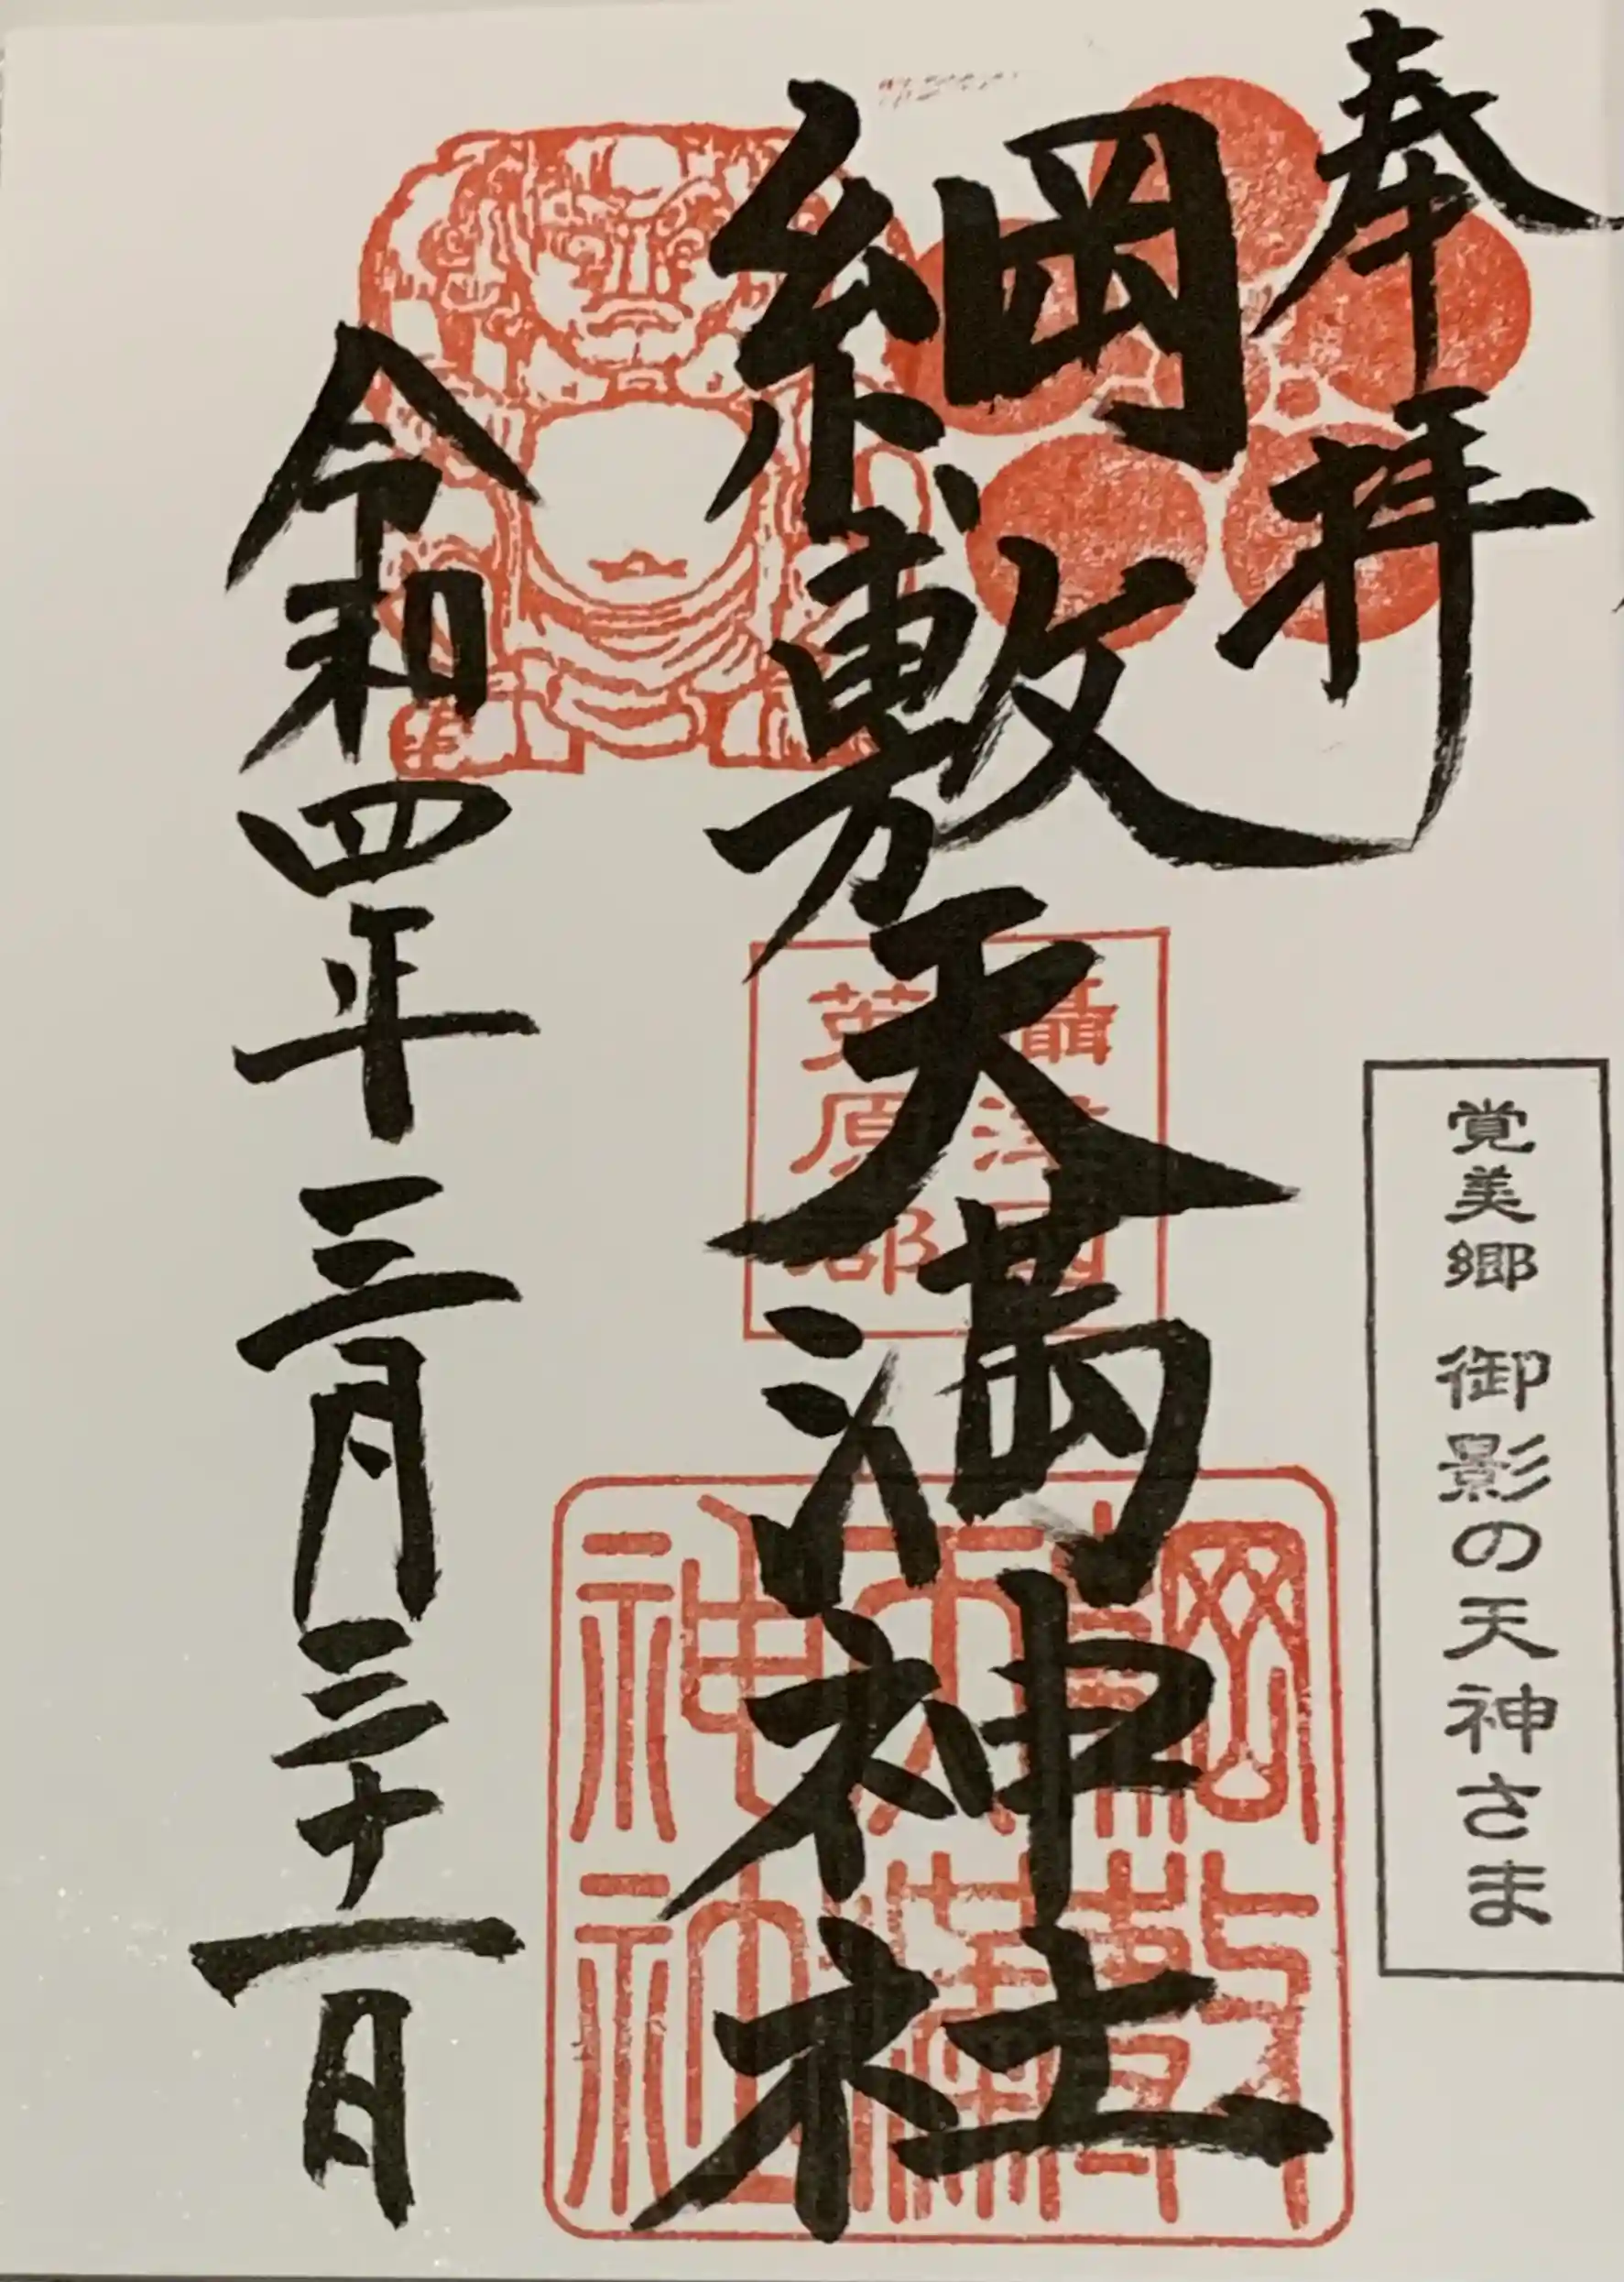 奉拝
覚美郷 御影の天神さま
綱敷天満神社
攝津国
菟原郡
綱敷
天満
神社
令和四年三月三十一日